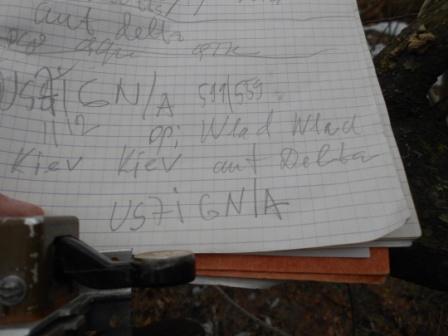 ant delta
US7IGN/A 599/559
11/12 op; Wlad Wlad
Kiev Kiev ant Delta
US7IGN/A